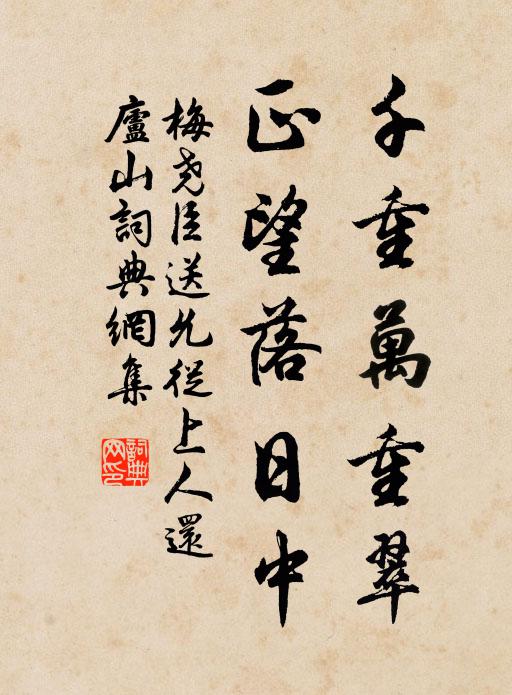 千重萬重翠
正望落日中
梅尧臣送允從上人還
廬山詞典網集
詞典网印